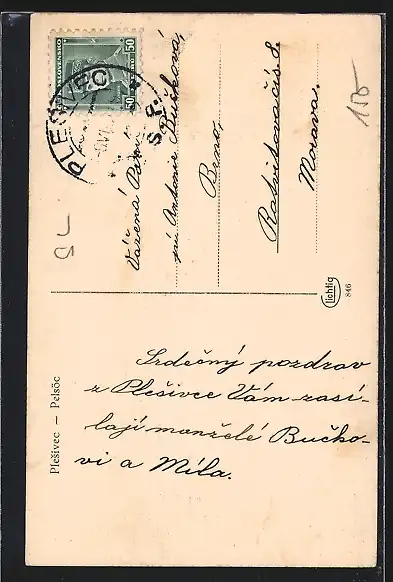 ČESKOSLOVENSKO
50 50
PLEŠIVEC
Vážená Paní
pí Antonie Bučková,
Brno,
Ratvitovačís 8.
Morava.
155
Lichtig
846
Plešivec — Pelsőc
Srdečný pozdrav
z Plešivce Vám zasí-
lají manželé Bučko-
vi a Míla.